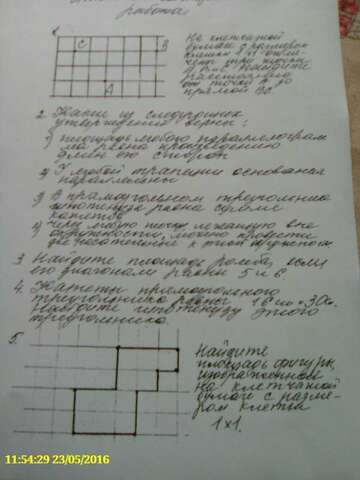 работа
1.
С
В
А
На клетчатой
бумаге с размером
клетки 1х1 отме-
чены три точки
А, В и С. Найдите
расстояние
от точки А до
прямой ВС
2. Какие из следующих
утверждений верны:
1) площадь любого параллелограм
ма равна произведению
длин его сторон
2) У любой трапеции основания
параллельны
3) В прямоугольном треугольнике
гипотенуза равна сумме
катетов
4) Через любую точку, лежащую вне
окружности, можно провести
две касательные к этой окружности
3. Найдите площадь ромба, если
его диагонали равны 5 и 6
4. Катеты прямоугольного
треугольника равны 16 см и 30см.
Найдите гипотенузу этого
треугольника.
5.
Найдите
площадь фигуры,
изображенной
на клетчатой
бумаге с разме-
ром клетки
1х1.
11:54:29 23/05/2016